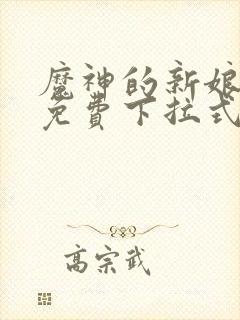 魔神的新娘
免費下拉式
高宗武